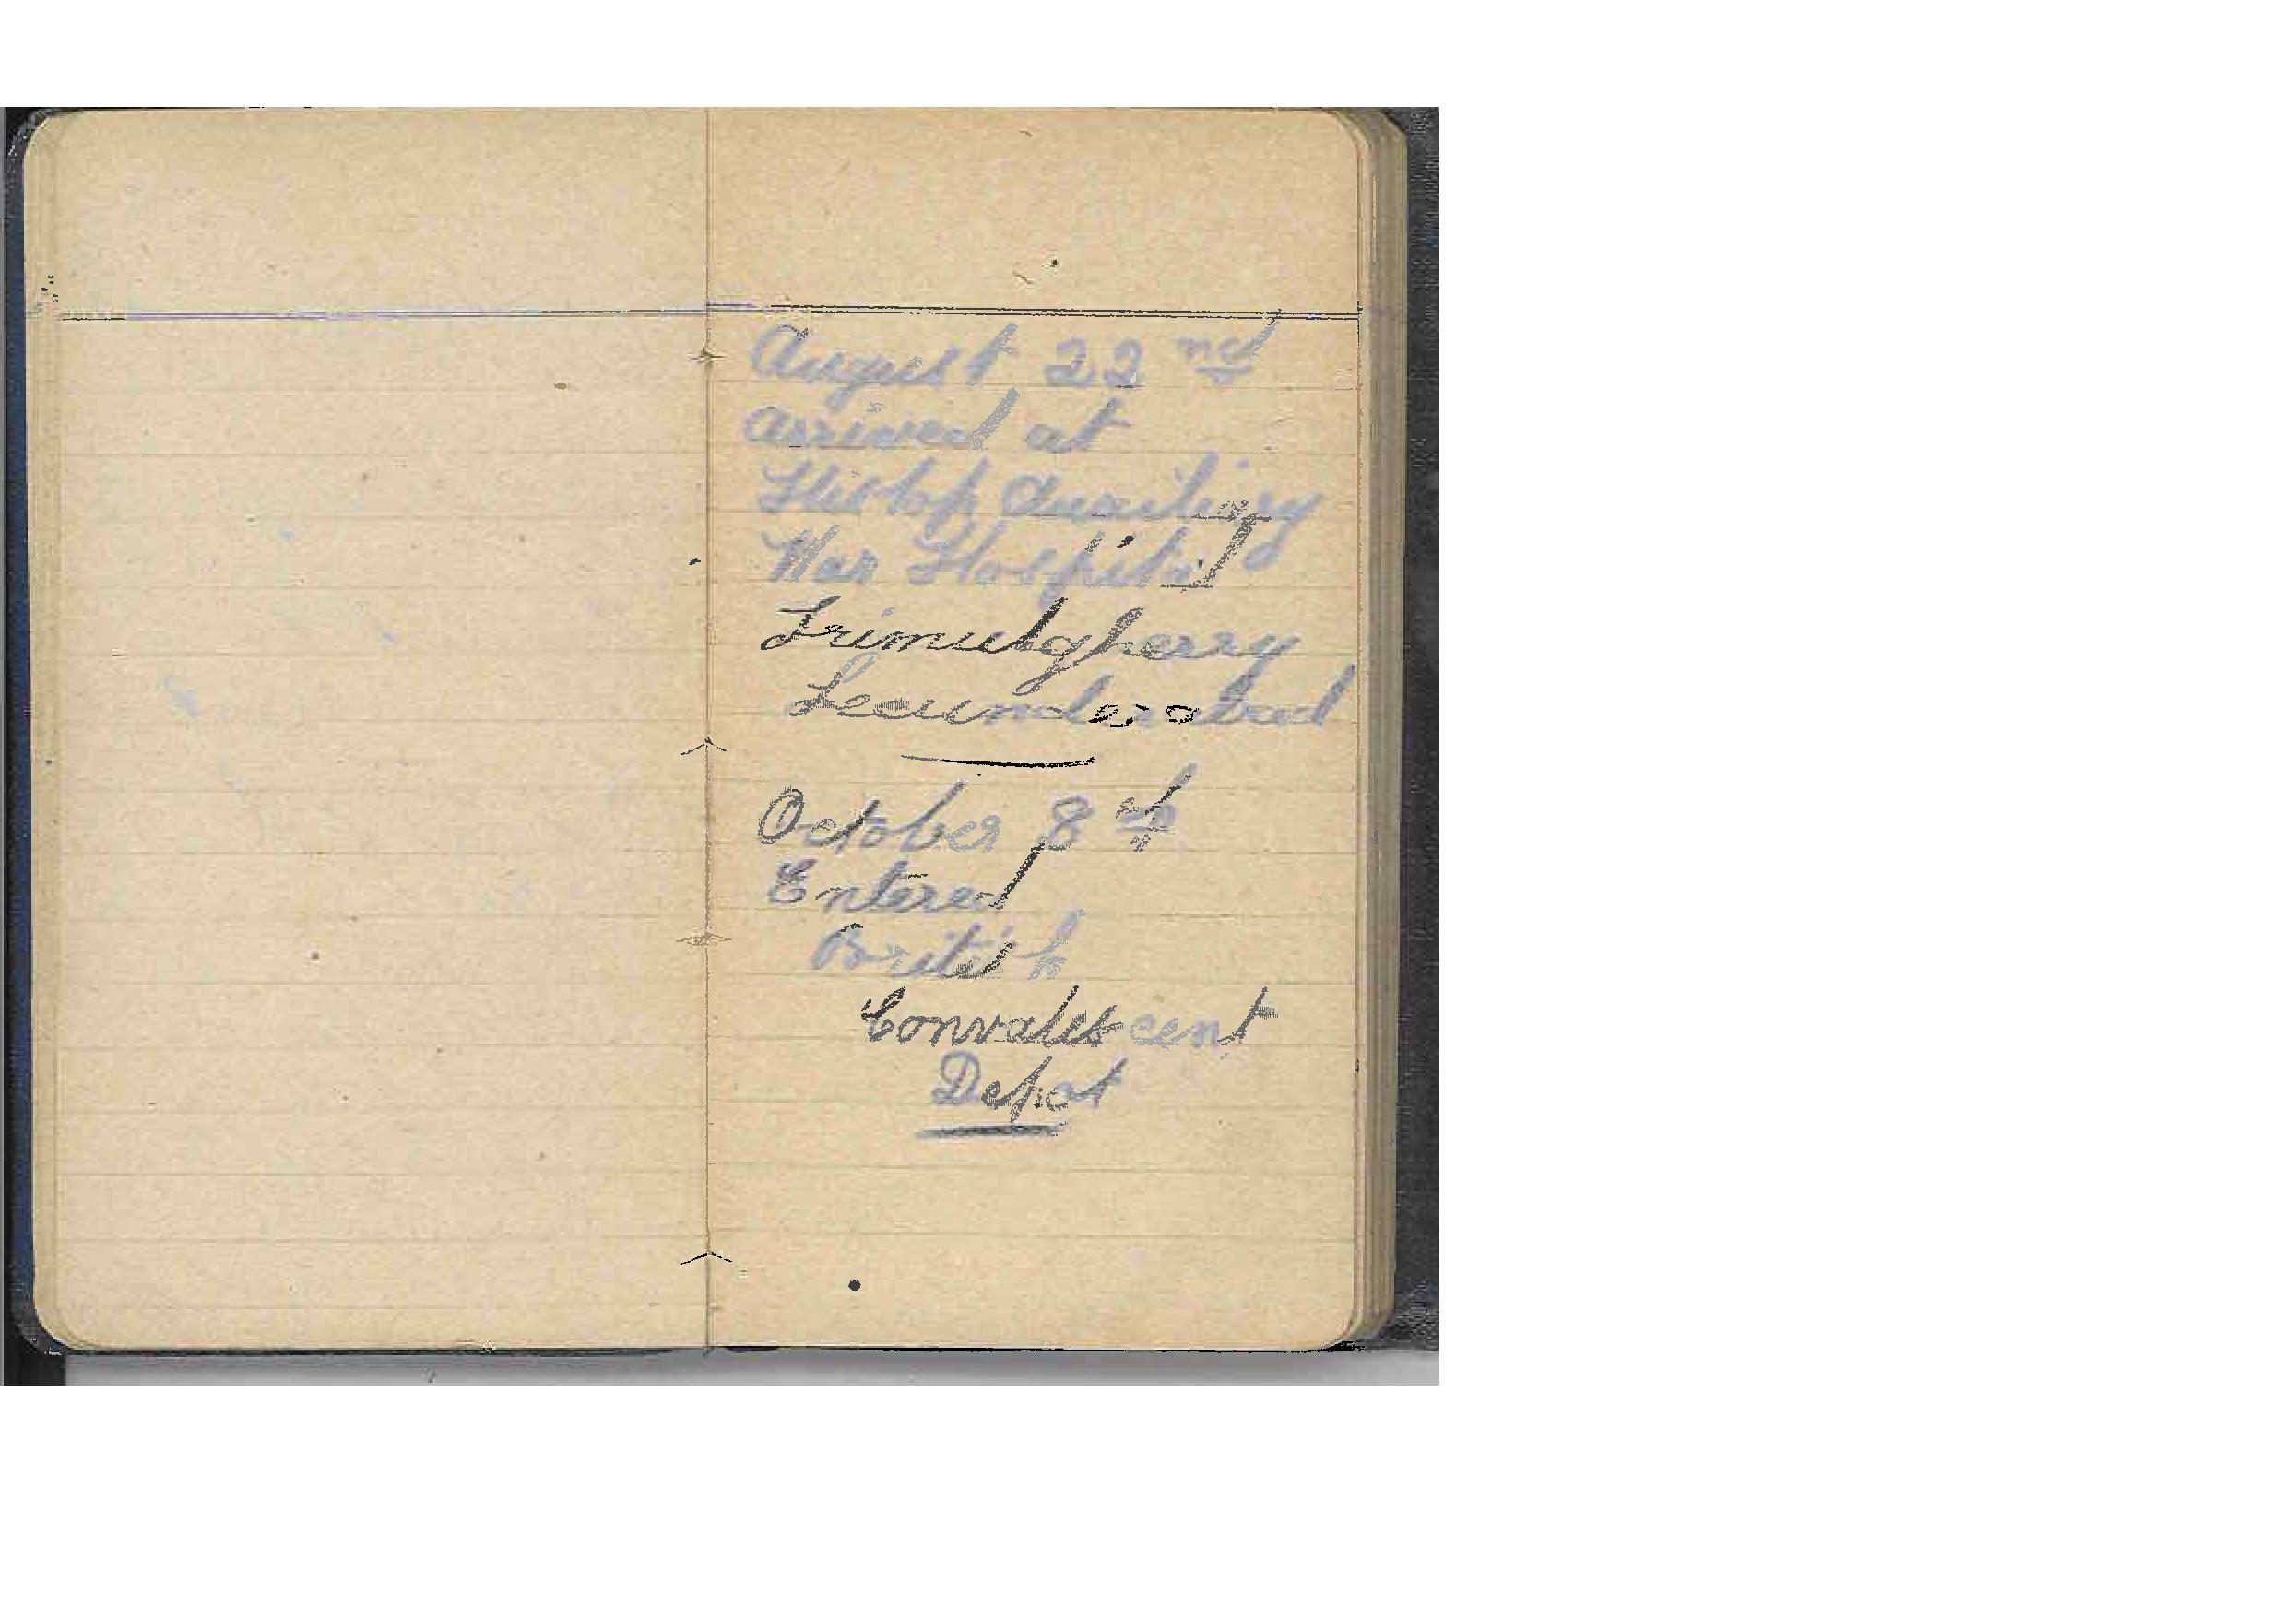 August 22nd
arrived at
Hislop Auxiliary
War Hospital
Trimulgherry
Secunderabad
October 8th
Entered
British
Convalescent
Depot